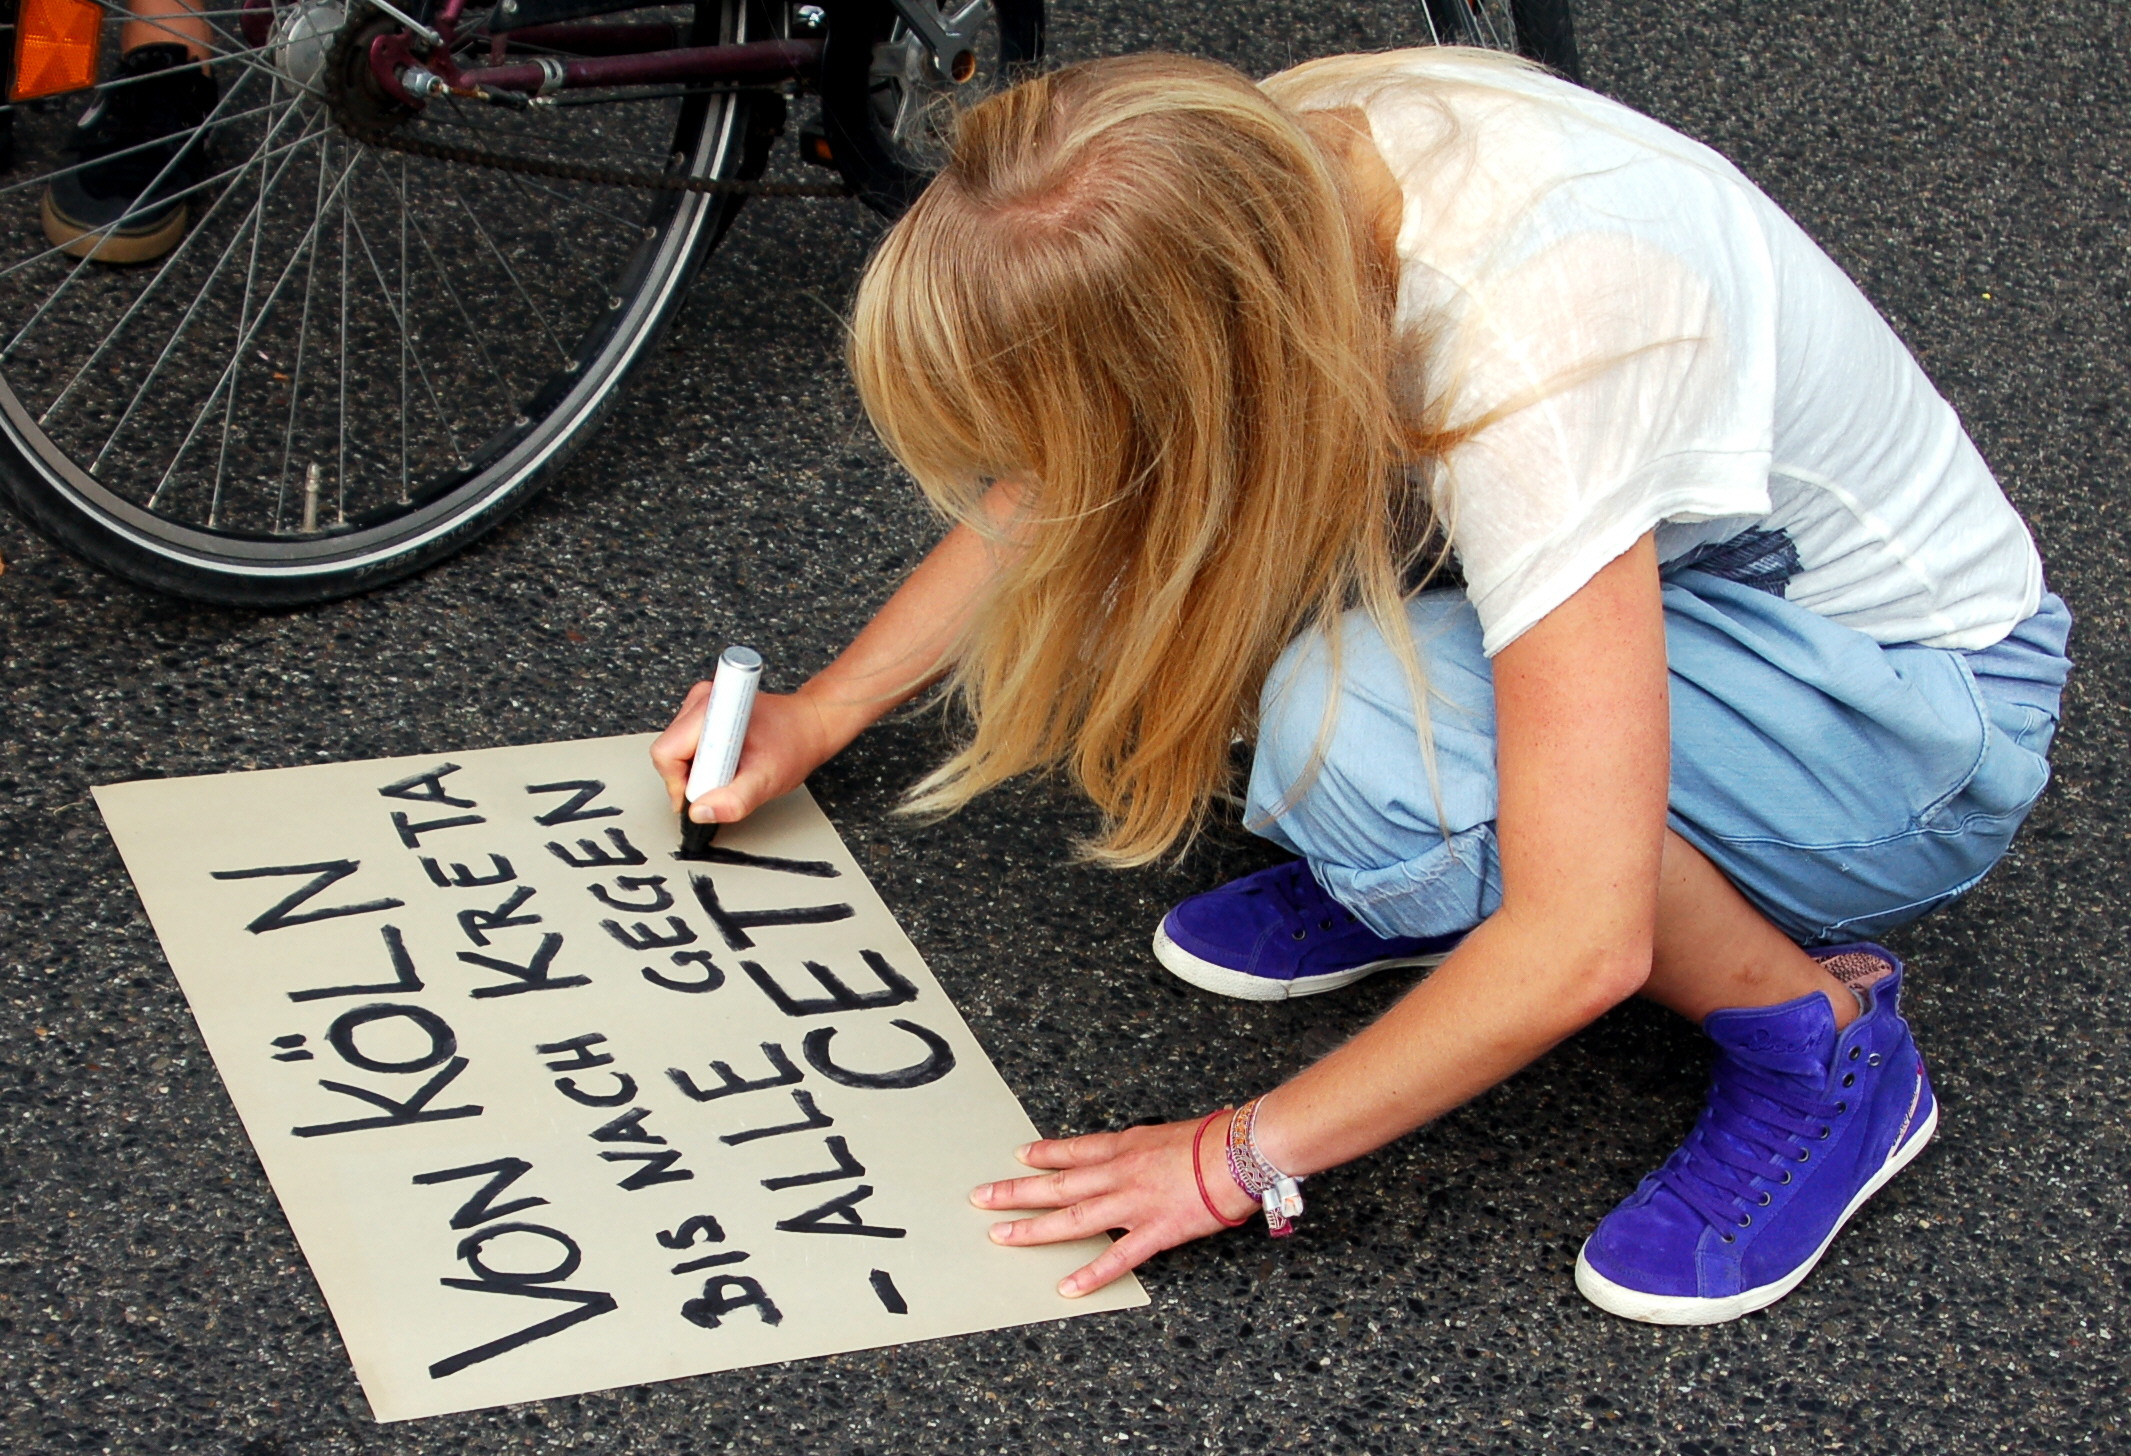 VON KÖLN
BIS NACH KRETA
- ALLE GEGEN
CET/